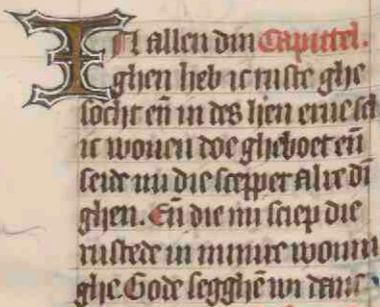 IN allen din Capittel.
ghen heb ic ruste ghe
socht en̄ in des h'en erue sel
ic wonen doe gheboet en̄
seide mi die scepper alre di
ghen. En̄ die mi sciep die
rustede in minre wonin
ghe. Gode segghē wi danc